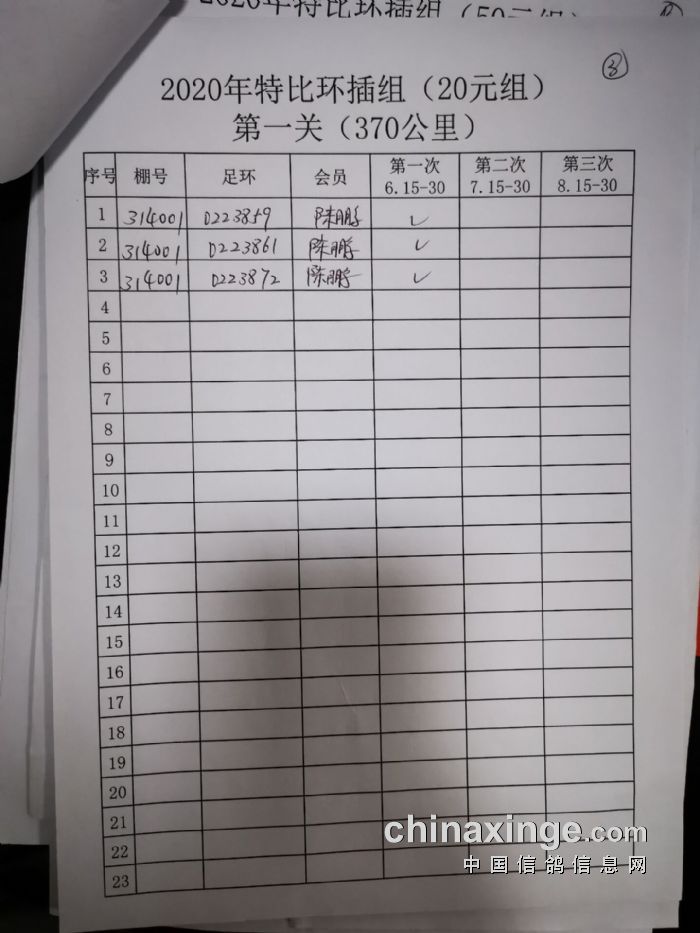 2020年特比环插组（50元组）
③
2020年特比环插组（20元组）
第一关（370公里）
序号 棚号 足环 会员 第一次 6.15-30 第二次 7.15-30 第三次 8.15-30
1 314001 0223859 陈鹏 ✓
2 314001 0223861 陈鹏 ✓
3 314001 0223872 陈鹏 ✓
4
5
6
7
8
9
10
11
12
13
14
15
16
17
18
19
20
21
22
23
chinaxinge.com
中国信鸽信息网